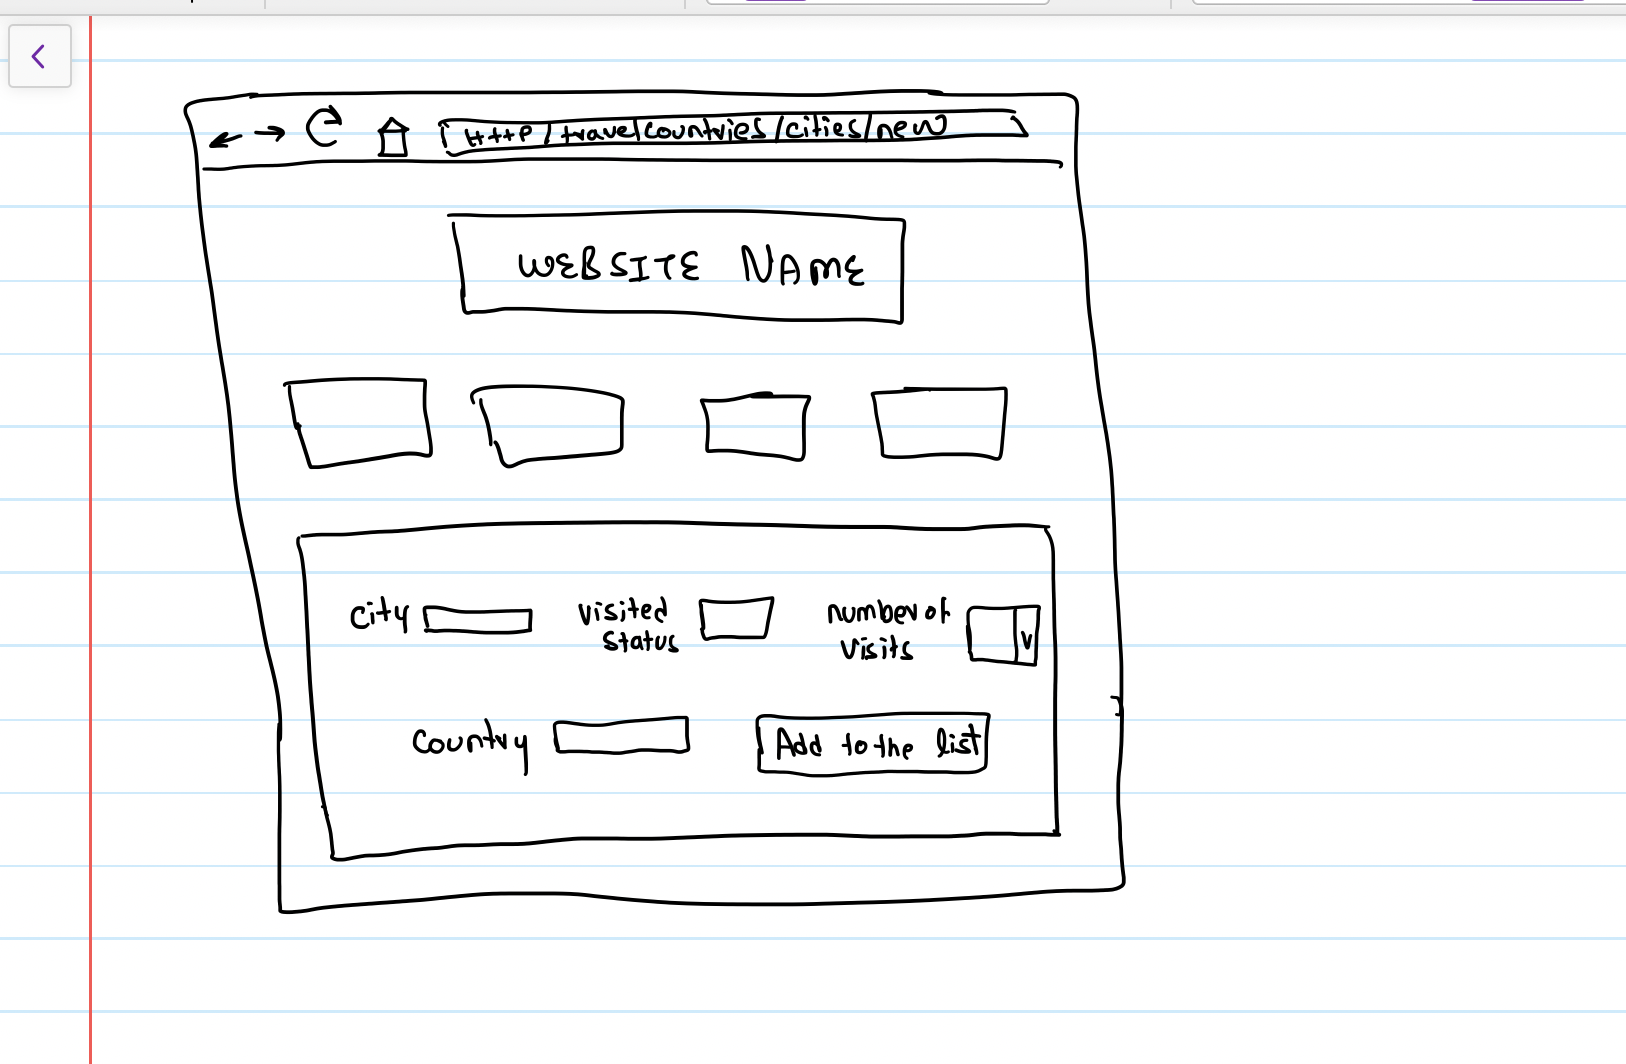 Http/travelcountries/cities/new
WEBSITE NAME
City
visited
status
number of
visits
v
Country
Add to the list